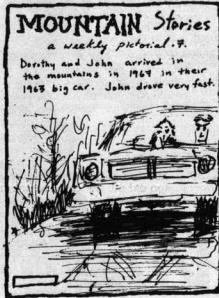 MOUNTAIN Stories
a weekly pictorial. 7.
Dorothy and John arrived in
the mountains in 1967 in their
1963 big car. John drove very fast.